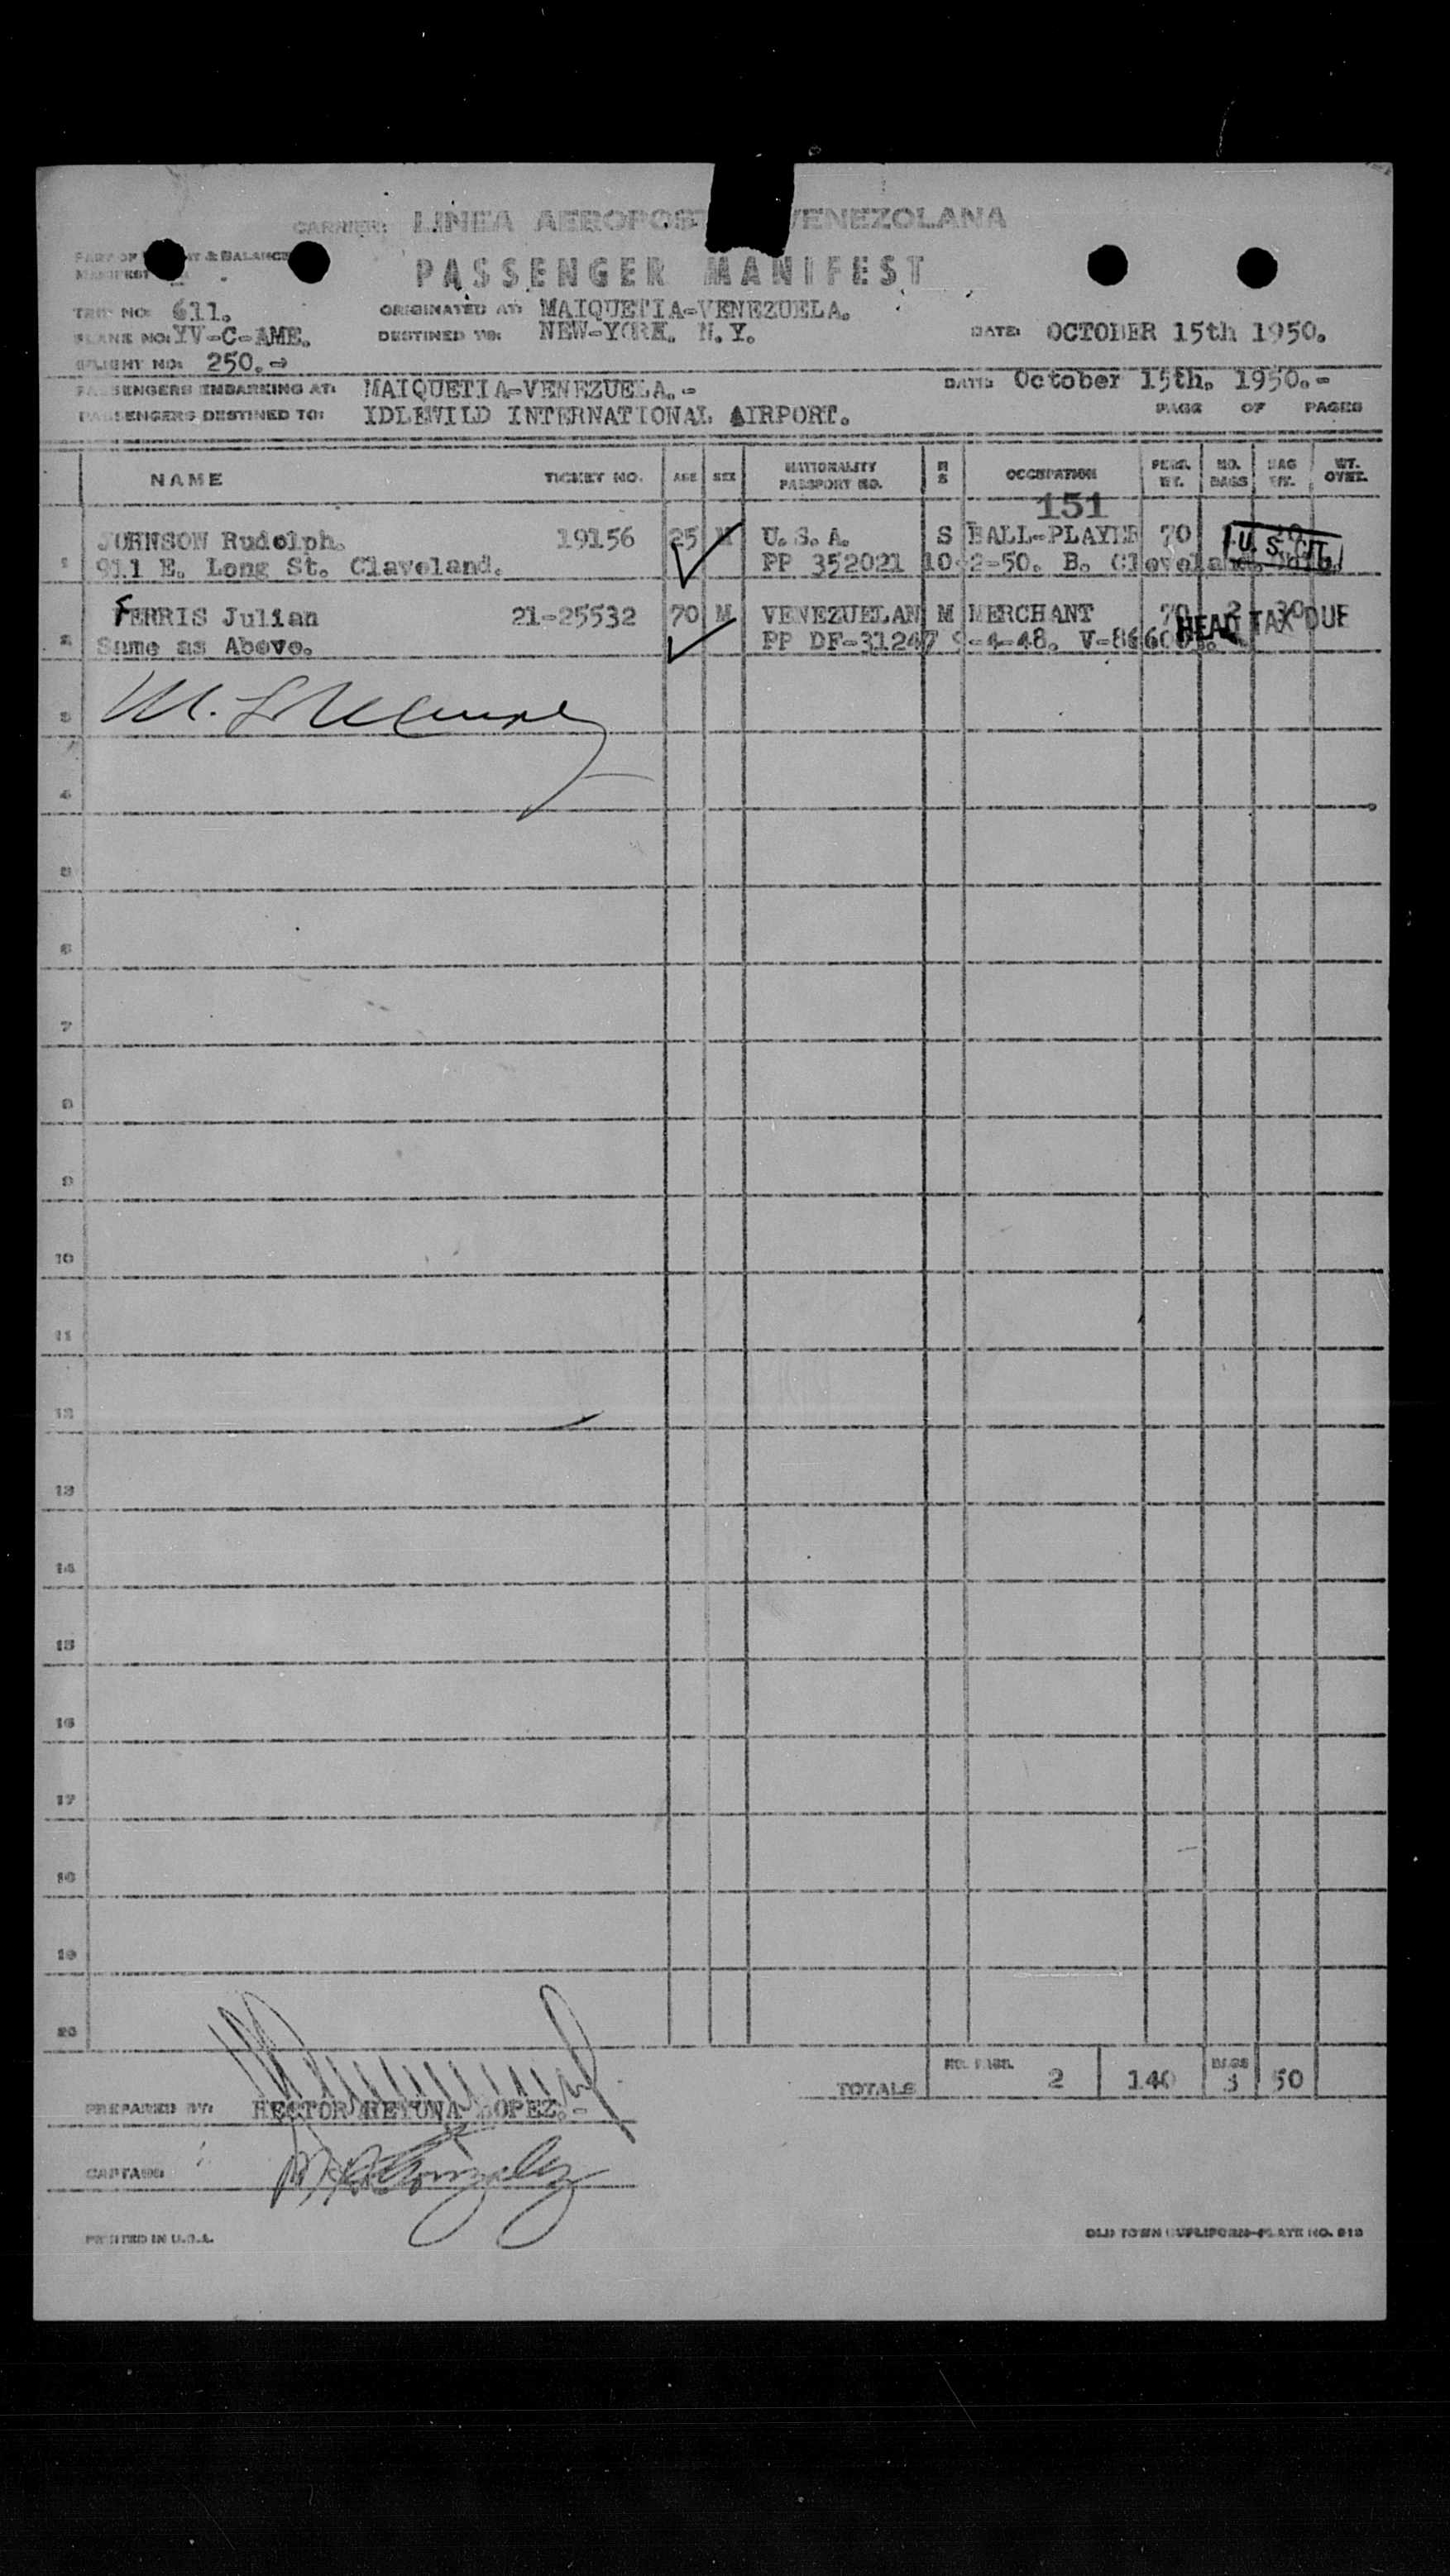 CARRIER: LINEA AEROPOST VENEZOLANA
PART OF T & BALANCE
MANIFEST
PASSENGER MANIFEST
TRIP NO: 611. ORIGINATED AT: MAIQUETIA-VENEZUELA.
PLANE NO: YV-C-AME. DESTINED TO: NEW-YORK. N.Y. DATE: OCTOBER 15th 1950.
FLIGHT NO: 250.-
PASSENGERS EMBARKING AT: MAIQUETIA-VENEZUELA.- DATE: October 15th. 1950.-
PASSENGERS DESTINED TO: IDLEWILD INTERNATIONAL AIRPORT. PAGE OF PAGES
NAME TICKET NO. AGE SEX NATIONALITY PASSPORT NO. M S OCCUPATION PERS. WT. NO. BAGS BAG WT. WT. OVWT.
151
1 JOHNSON Rudolph. 19156 25 M U.S.A. S BALL-PLAYER 70
911 E. Long St. Claveland. PP 352021 10-2-50. B. Cleveland. U.S. CIT.
2 FERRIS Julian 21-25532 70 M VENEZUELAN M MERCHANT 70 2 30
Same as Above. PP DF-31247 9-4-48. HEAD TAX DUE
3
4
5
6
7
8
9
10
11
12
13
14
15
16
17
18
19
20
TOTALS NO. PASS. 2 140 BAGS 3 50
PREPARED BY: HECTOR REYUNA LOPEZ.-
CAPTAIN:
PRINTED IN U.S.A. OLD TOWN DUPLIFORM-PLATE NO. 918